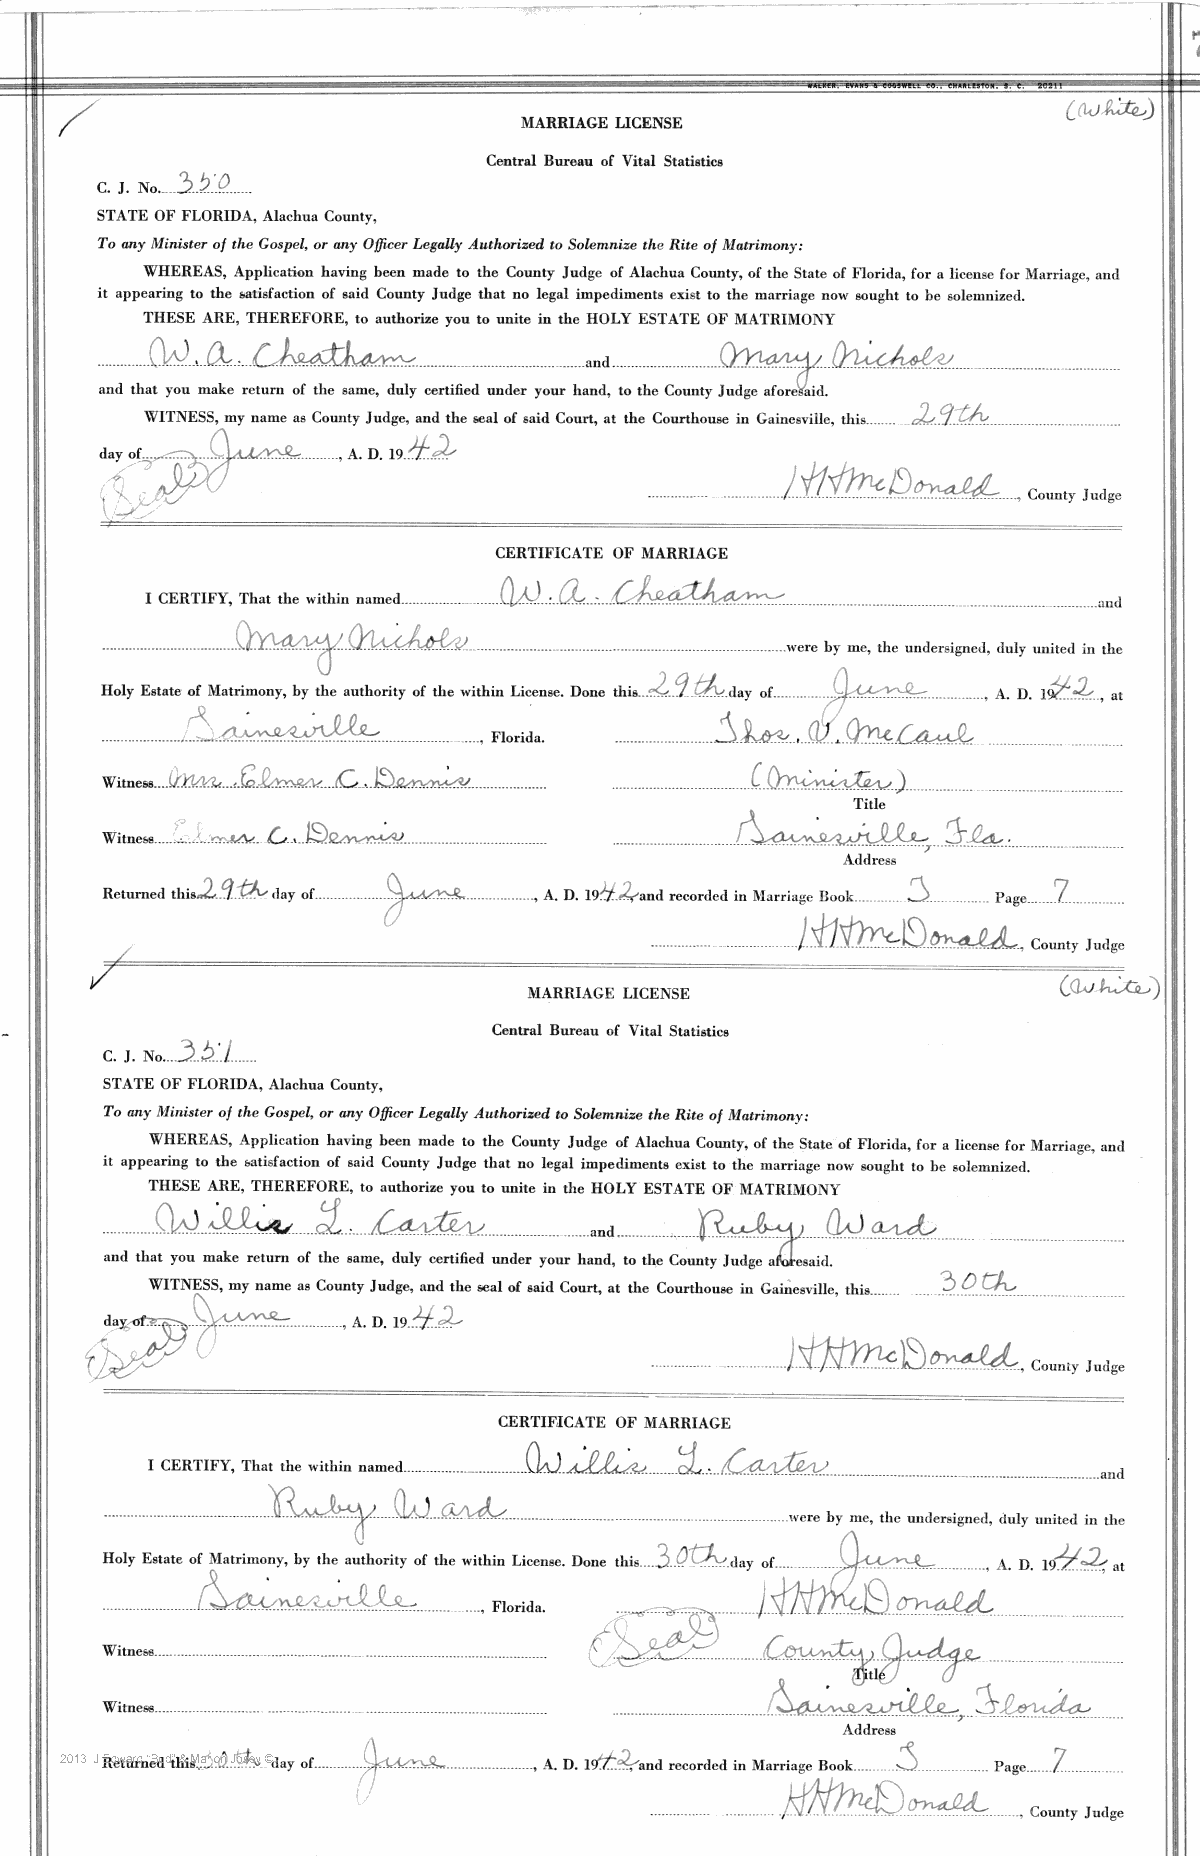 7
WALKER, EVANS & COGSWELL CO., CHARLESTON, S. C. 20211
(White)
MARRIAGE LICENSE
Central Bureau of Vital Statistics
C. J. No. 350
STATE OF FLORIDA, Alachua County,
To any Minister of the Gospel, or any Officer Legally Authorized to Solemnize the Rite of Matrimony:
WHEREAS, Application having been made to the County Judge of Alachua County, of the State of Florida, for a license for Marriage, and
it appearing to the satisfaction of said County Judge that no legal impediments exist to the marriage now sought to be solemnized.
THESE ARE, THEREFORE, to authorize you to unite in the HOLY ESTATE OF MATRIMONY
W. A. Cheatham and Mary Nichols
and that you make return of the same, duly certified under your hand, to the County Judge aforesaid.
WITNESS, my name as County Judge, and the seal of said Court, at the Courthouse in Gainesville, this 29th
day of June, A. D. 1942
(Seal) HHMcDonald, County Judge
CERTIFICATE OF MARRIAGE
I CERTIFY, That the within named W. A. Cheatham and
Mary Nichols were by me, the undersigned, duly united in the
Holy Estate of Matrimony, by the authority of the within License. Done this 29th day of June, A. D. 1942, at
Gainesville, Florida. Thos. V. McCaul
Witness Mrs. Elmer C. Dennis (Minister)
Title
Witness Elmer C. Dennis Gainesville, Fla.
Address
Returned this 29th day of June, A. D. 1942, and recorded in Marriage Book J Page 7
HHMcDonald, County Judge
(White)
MARRIAGE LICENSE
Central Bureau of Vital Statistics
C. J. No. 351
STATE OF FLORIDA, Alachua County,
To any Minister of the Gospel, or any Officer Legally Authorized to Solemnize the Rite of Matrimony:
WHEREAS, Application having been made to the County Judge of Alachua County, of the State of Florida, for a license for Marriage, and
it appearing to the satisfaction of said County Judge that no legal impediments exist to the marriage now sought to be solemnized.
THESE ARE, THEREFORE, to authorize you to unite in the HOLY ESTATE OF MATRIMONY
Willis L. Carter and Ruby Ward
and that you make return of the same, duly certified under your hand, to the County Judge aforesaid.
WITNESS, my name as County Judge, and the seal of said Court, at the Courthouse in Gainesville, this 30th
day of June, A. D. 1942
(Seal) HHMcDonald, County Judge
CERTIFICATE OF MARRIAGE
I CERTIFY, That the within named Willis L. Carter and
Ruby Ward were by me, the undersigned, duly united in the
Holy Estate of Matrimony, by the authority of the within License. Done this 30th day of June, A. D. 1942, at
Gainesville, Florida. HHMcDonald
Witness (Seal) County Judge
Title
Witness Gainesville, Florida
Address
2013 J Edward "Bud" & Marion Josey ©
Returned this 30th day of June, A. D. 1942, and recorded in Marriage Book J Page 7
HHMcDonald, County Judge